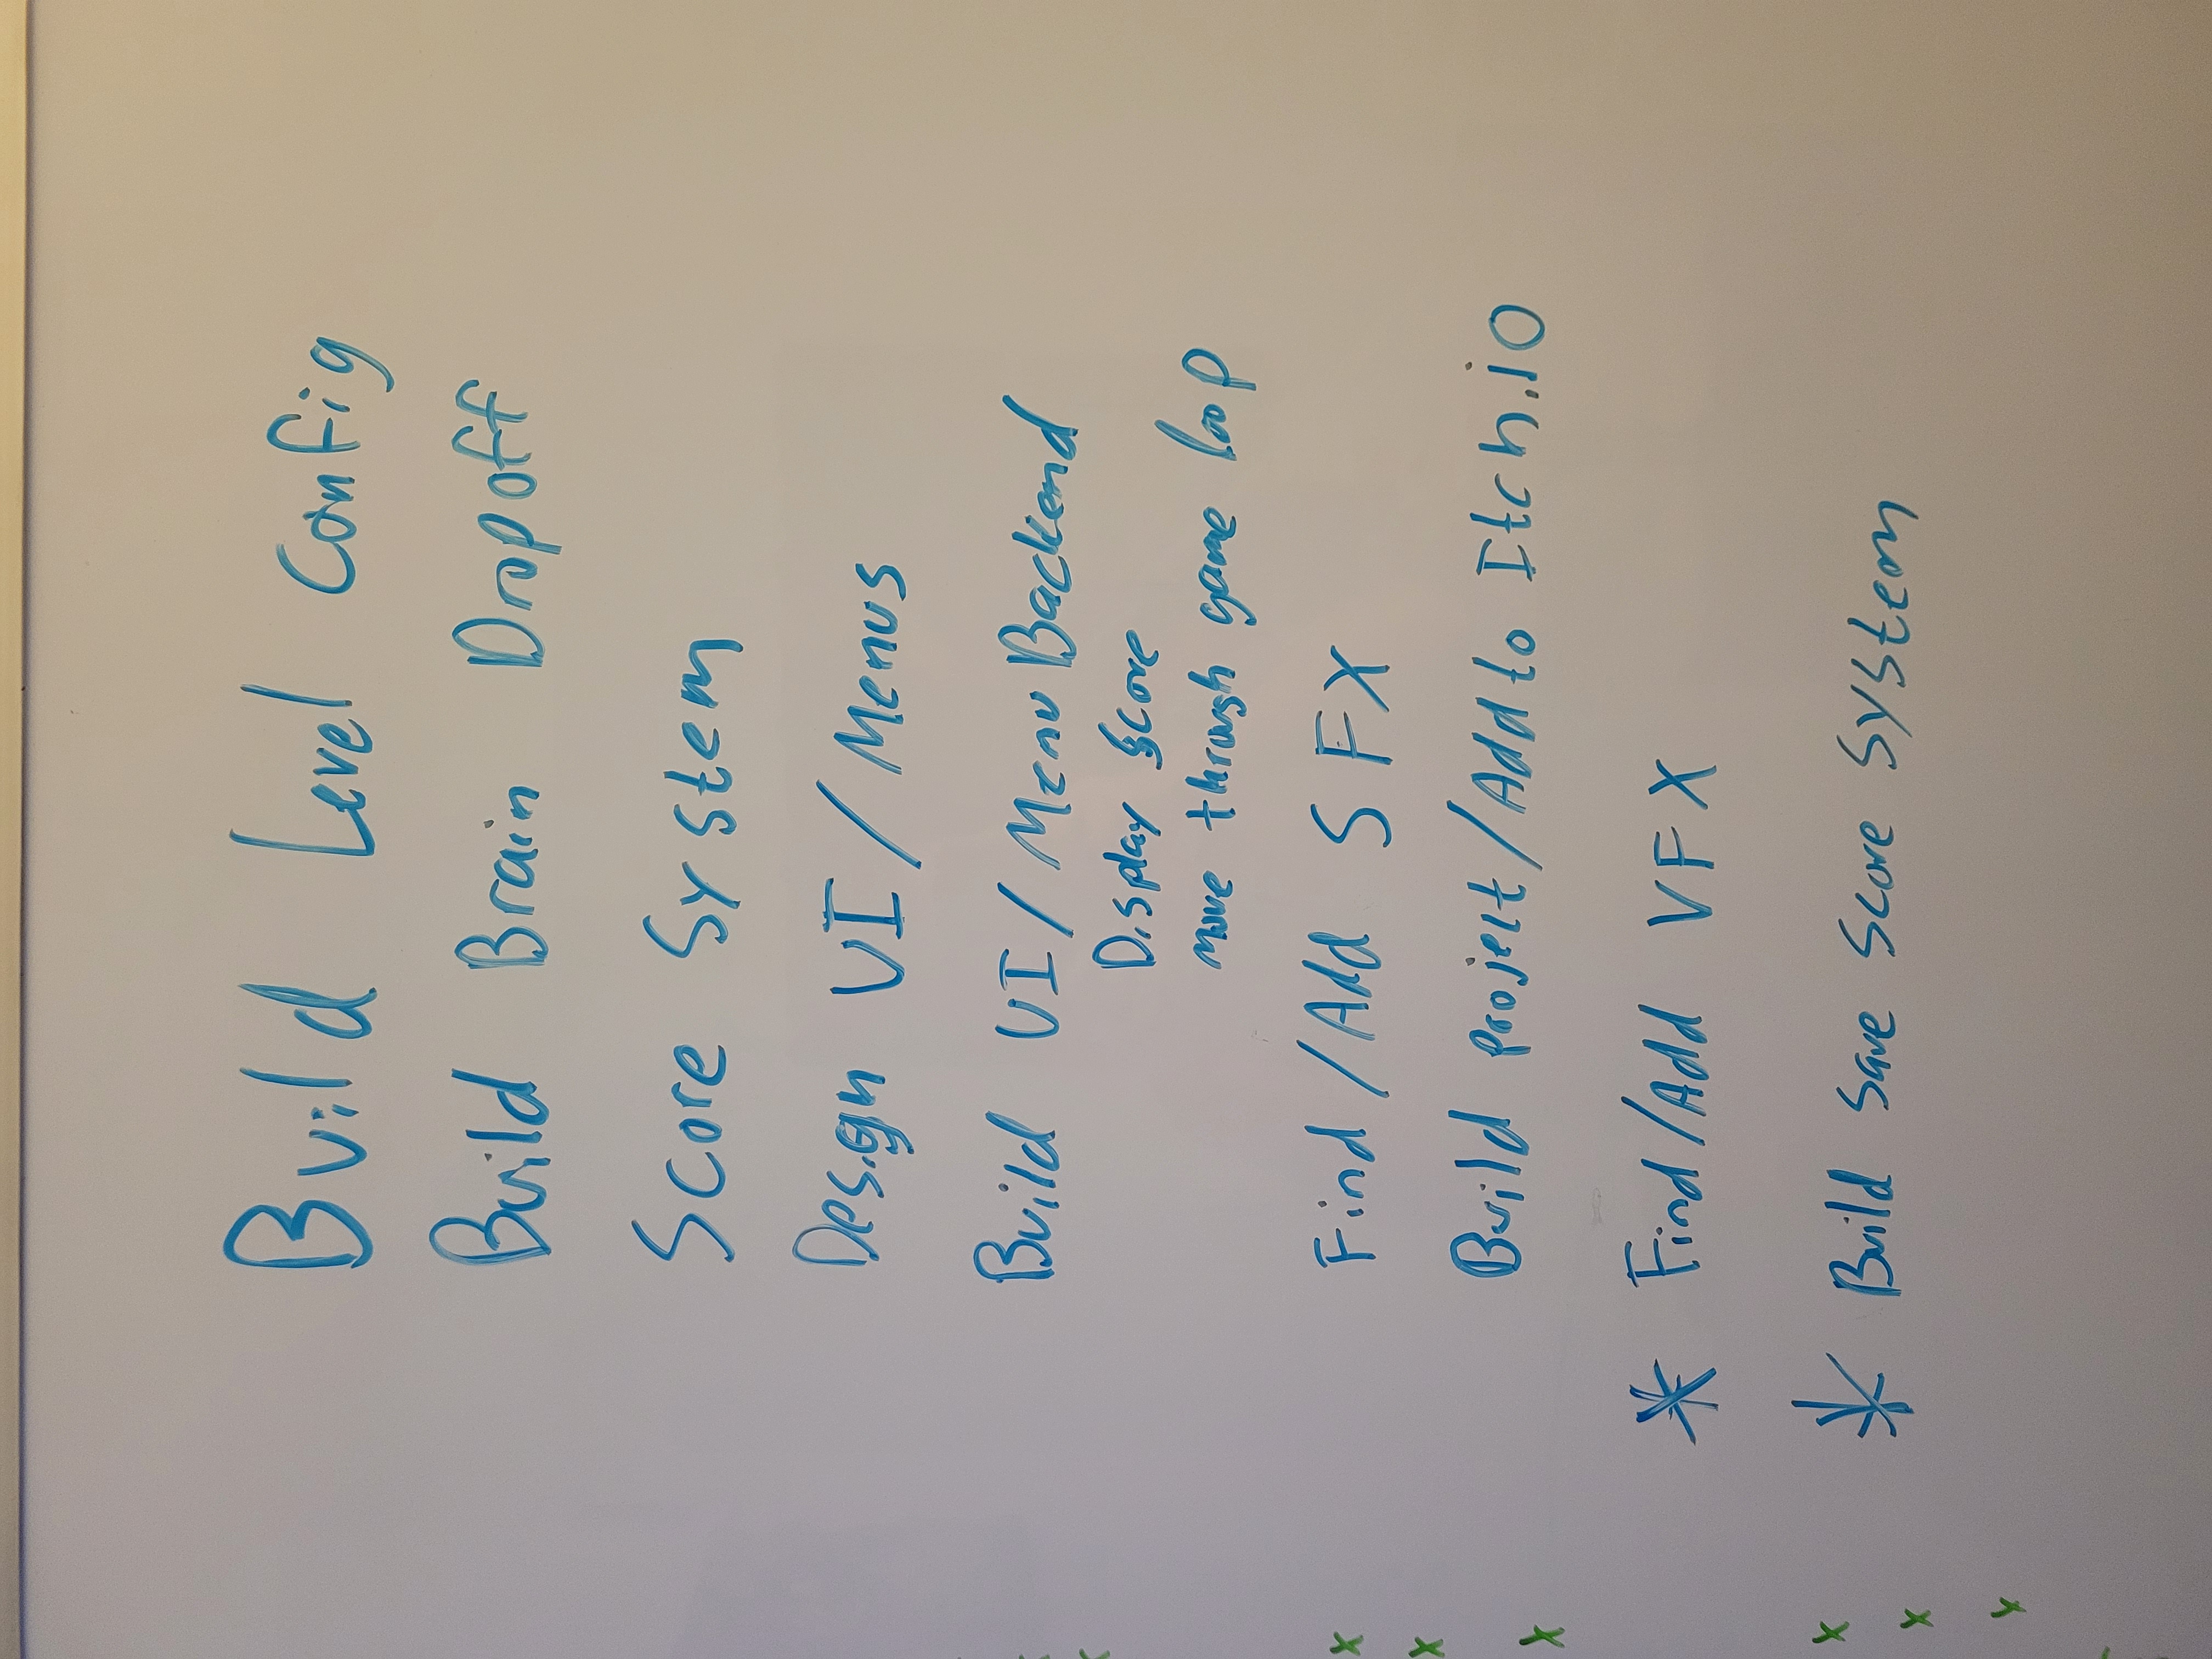 Build Level Config
Build Brain Dropoff
Score System
Design UI / Menus
Build UI / Menu Backend
Display Score
move through game loop
Find / Add SFX
Build project / Add to Itch.io
* Find / Add VFX
* Build Save Score System
x
x
x
x
x
x